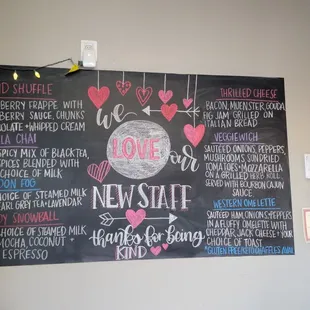 D SHUFFLE
BERRY FRAPPE WITH
BERRY SYRUP, CHUNKS
OLATE + WHIPPED CREAM
LA CHAI
SPICY MIX OF BLACK TEA,
SPICES BLENDED WITH
CHOICE OF MILK
OON FOG
CHOICE OF STEAMED MILK
EARL GREY TEA + LAVENDER
SNOWBALL
CHOICE OF STEAMED MILK
MOCHA, COCONUT +
ESPRESSO
we
LOVE
our
NEW STAFF
thanks for being
KIND
THRILLED CHEESE
BACON, MUENSTER, GOUDA,
FIG JAM GRILLED ON
ITALIAN BREAD
VEGGIEWICH
SAUTEED ONIONS, PEPPERS,
MUSHROOMS, SUNDRIED
TOMATOES + MOZZARELLA
ON A GRILLED HERB ROLL
SERVED WITH BOURBON CAJUN
SAUCE
WESTERN OMELETTE
SAUTEED HAM, ONIONS + PEPPERS
IN A FLUFFY OMELETTE WITH
CHEDDAR JACK CHEESE + YOUR
CHOICE OF TOAST
*GLUTEN FREE/KETO CHAFFLES AVAIL